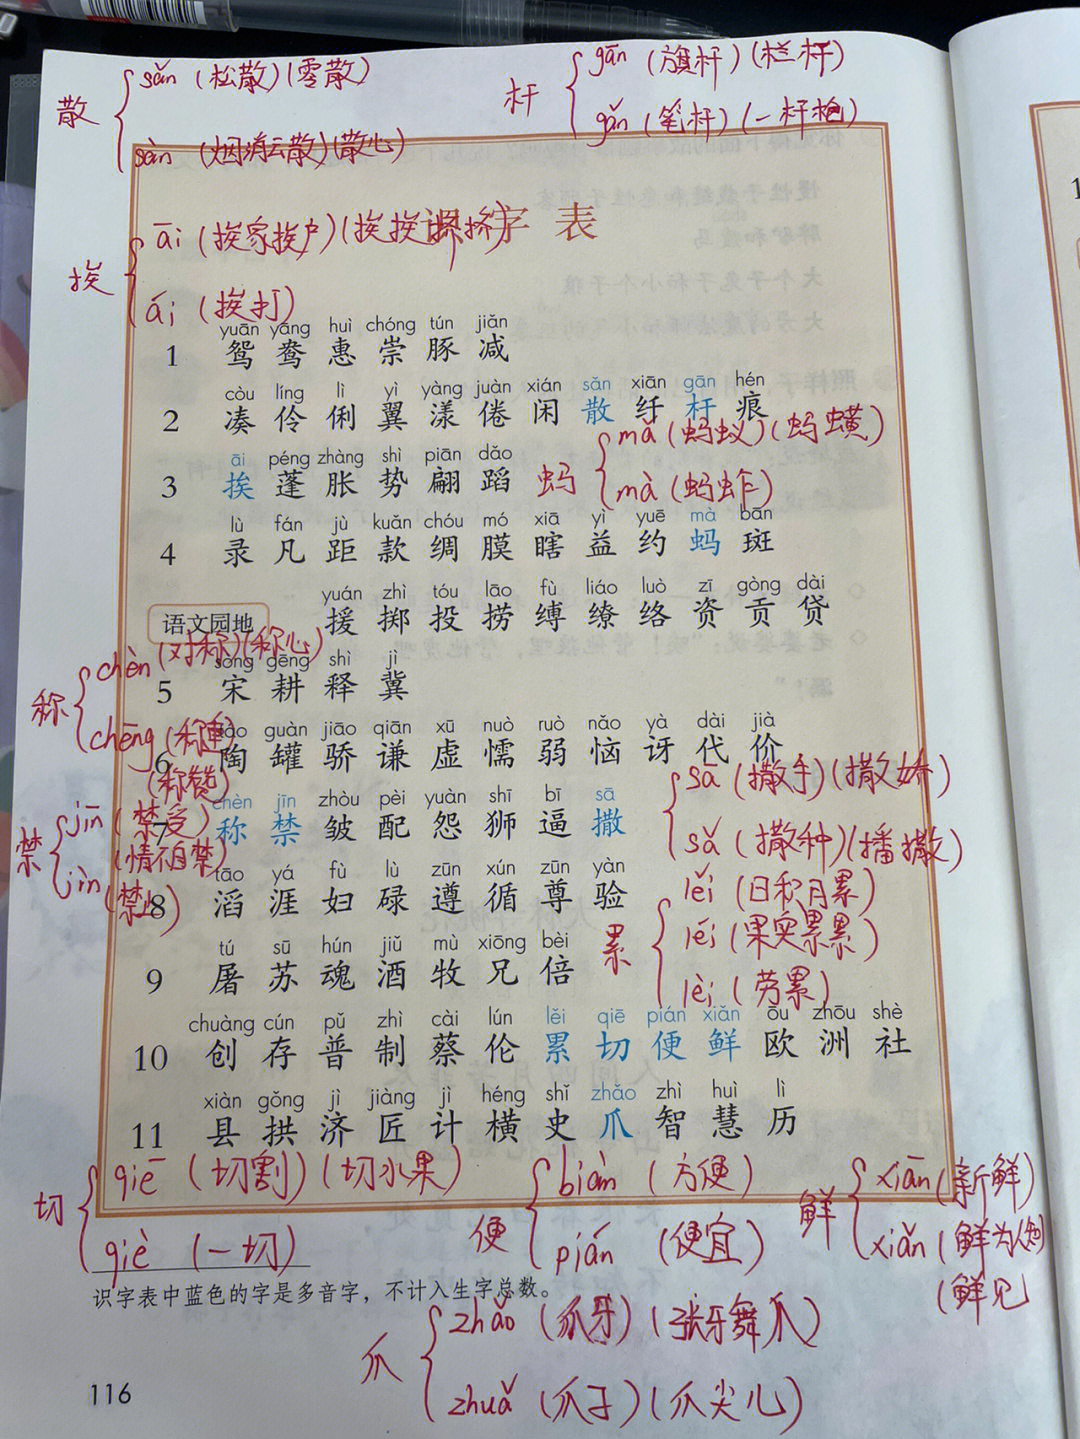 散 sǎn (松散)(零散)
sàn (烟消云散)(散心)
杆 gān (旗杆)(栏杆)
gǎn (笔杆)(一杆枪)
识字表
挨 āi (挨家挨户)(挨挨挤挤)
ái (挨打)
yuān yāng huì chóng tún jiǎn
1 鸳 鸯 惠 崇 豚 减
còu líng lì yì yàng juàn xián sǎn xiān gān hén
2 凑 伶 俐 翼 漾 倦 闲 散 纤 杆 痕
āi péng zhàng shì piān dǎo
3 挨 蓬 胀 势 翩 蹈
蚂 mǎ (蚂蚁)(蚂蟥)
mà (蚂蚱)
lù fán jù kuǎn chóu mó xiā yì yuē mà bān
4 录 凡 距 款 绸 膜 瞎 益 约 蚂 斑
yuán zhì tóu lāo fù liáo luò zī gòng dài
语文园地 援 掷 投 捞 缚 缭 络 资 贡 贷
称 chèn (对称)(称心)
chēng (称重)
(称赞)
sòng gēng shì jì
5 宋 耕 释 冀
táo guàn jiāo qiān xū nuò ruò nǎo yà dài jià
6 陶 罐 骄 谦 虚 懦 弱 恼 讶 代 价
chèn jīn zhòu pèi yuàn shī bī sā
7 称 禁 皱 配 怨 狮 逼 撒
禁 jīn (禁受)
(情不自禁)
jìn (禁止)
sā (撒手)(撒娇)
sǎ (撒种)(播撒)
tāo yá fù lù zūn xún zūn yàn
8 滔 涯 妇 碌 遵 循 尊 验
累 lěi (日积月累)
léi (果实累累)
lèi (劳累)
tú sū hún jiǔ mù xiōng bèi
9 屠 苏 魂 酒 牧 兄 倍
chuàng cún pǔ zhì cài lún lěi qiē pián xiǎn ōu zhōu shè
10 创 存 普 制 蔡 伦 累 切 便 鲜 欧 洲 社
xiàn gǒng jì jiàng jì héng shǐ zhǎo zhì huì lì
11 县 拱 济 匠 计 横 史 爪 智 慧 历
切 qiē (切割)(切水果)
qiè (一切)
便 biàn (方便)
pián (便宜)
鲜 xiān (新鲜)
xiǎn (鲜为人知)
(鲜见
识字表中蓝色的字是多音字，不计入生字总数。
爪 zhǎo (爪牙)(张牙舞爪)
zhuǎ (爪子)(爪尖儿)
116